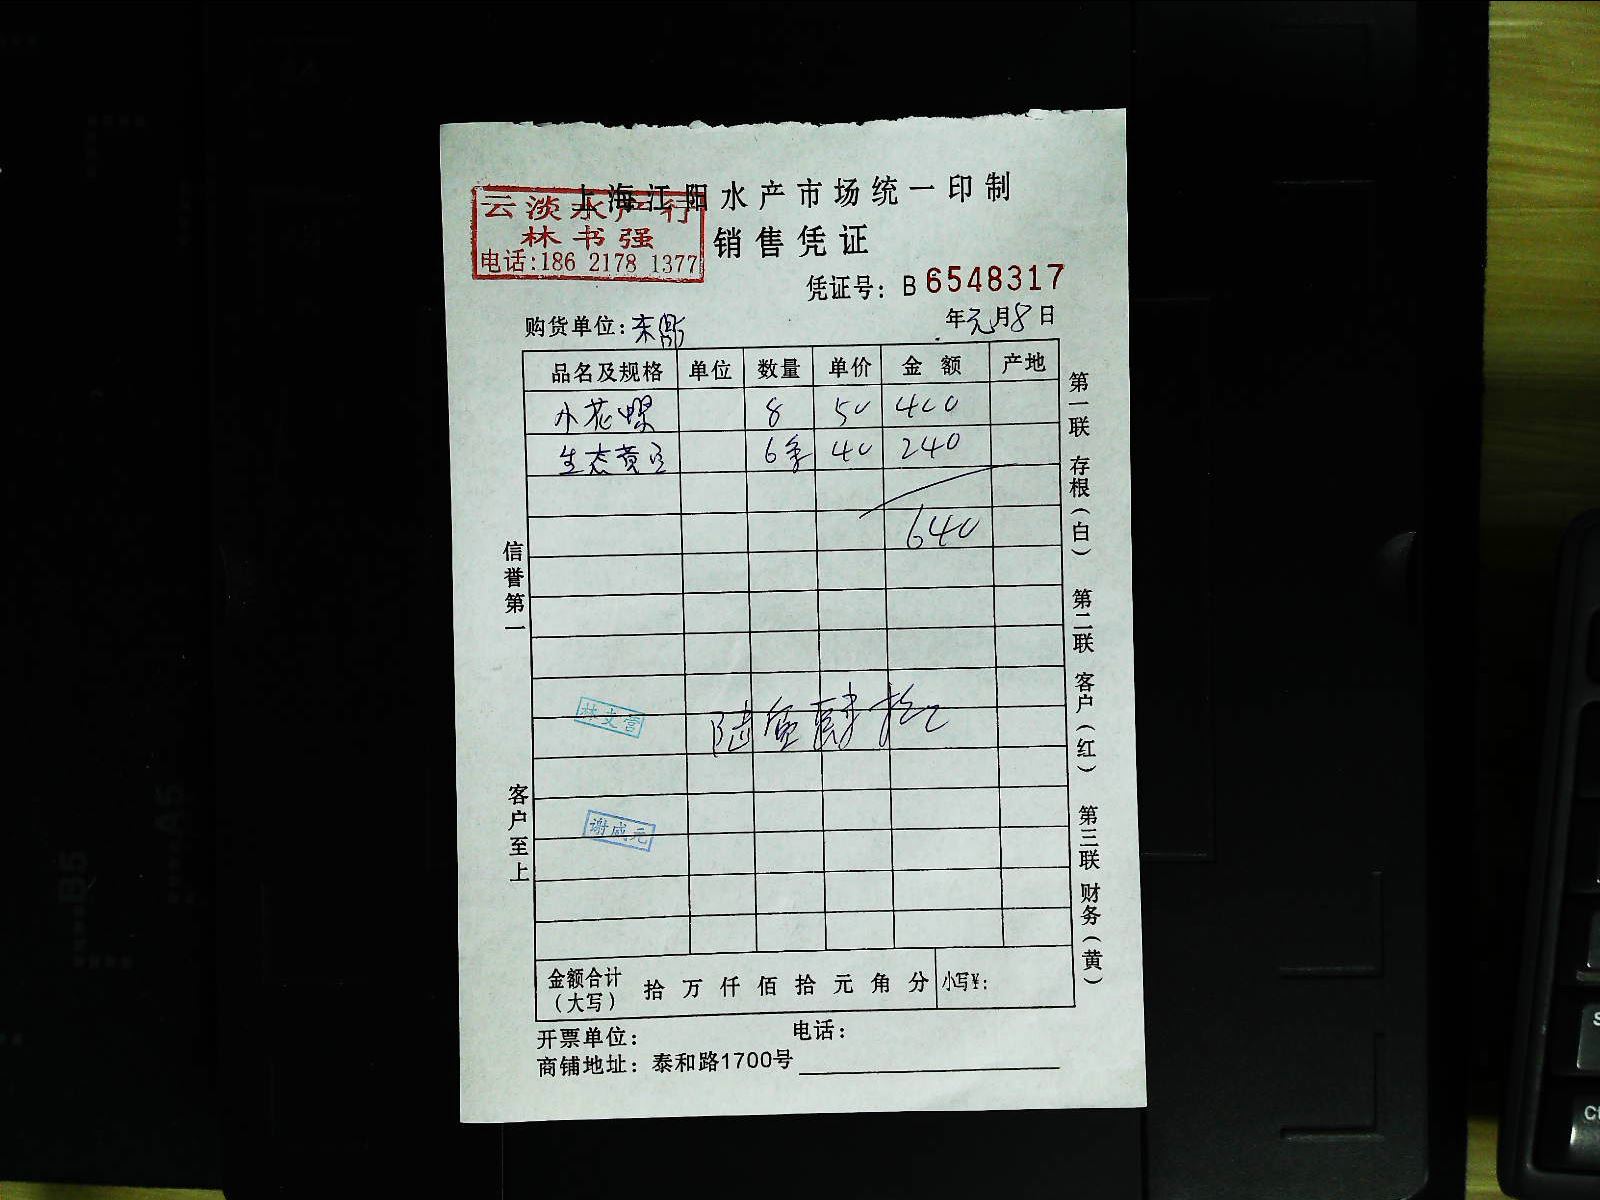 上海江阳水产市场统一印制
云淡水产行
林书强
电话:186 2178 1377
销售凭证
凭证号: B 6548317
购货单位:
年元月8日
品名及规格 单位 数量 单价 金额 产地
小花螺 8 50 400
生态黄 6 40 240
640
陆佰肆拾
林文营
谢成元
信誉第一
客户至上
第一联 存根(白) 第二联 客户(红) 第三联 财务(黄)
金额合计(大写) 拾 万 仟 佰 拾 元 角 分 小写¥:
开票单位: 电话:
商铺地址: 泰和路1700号